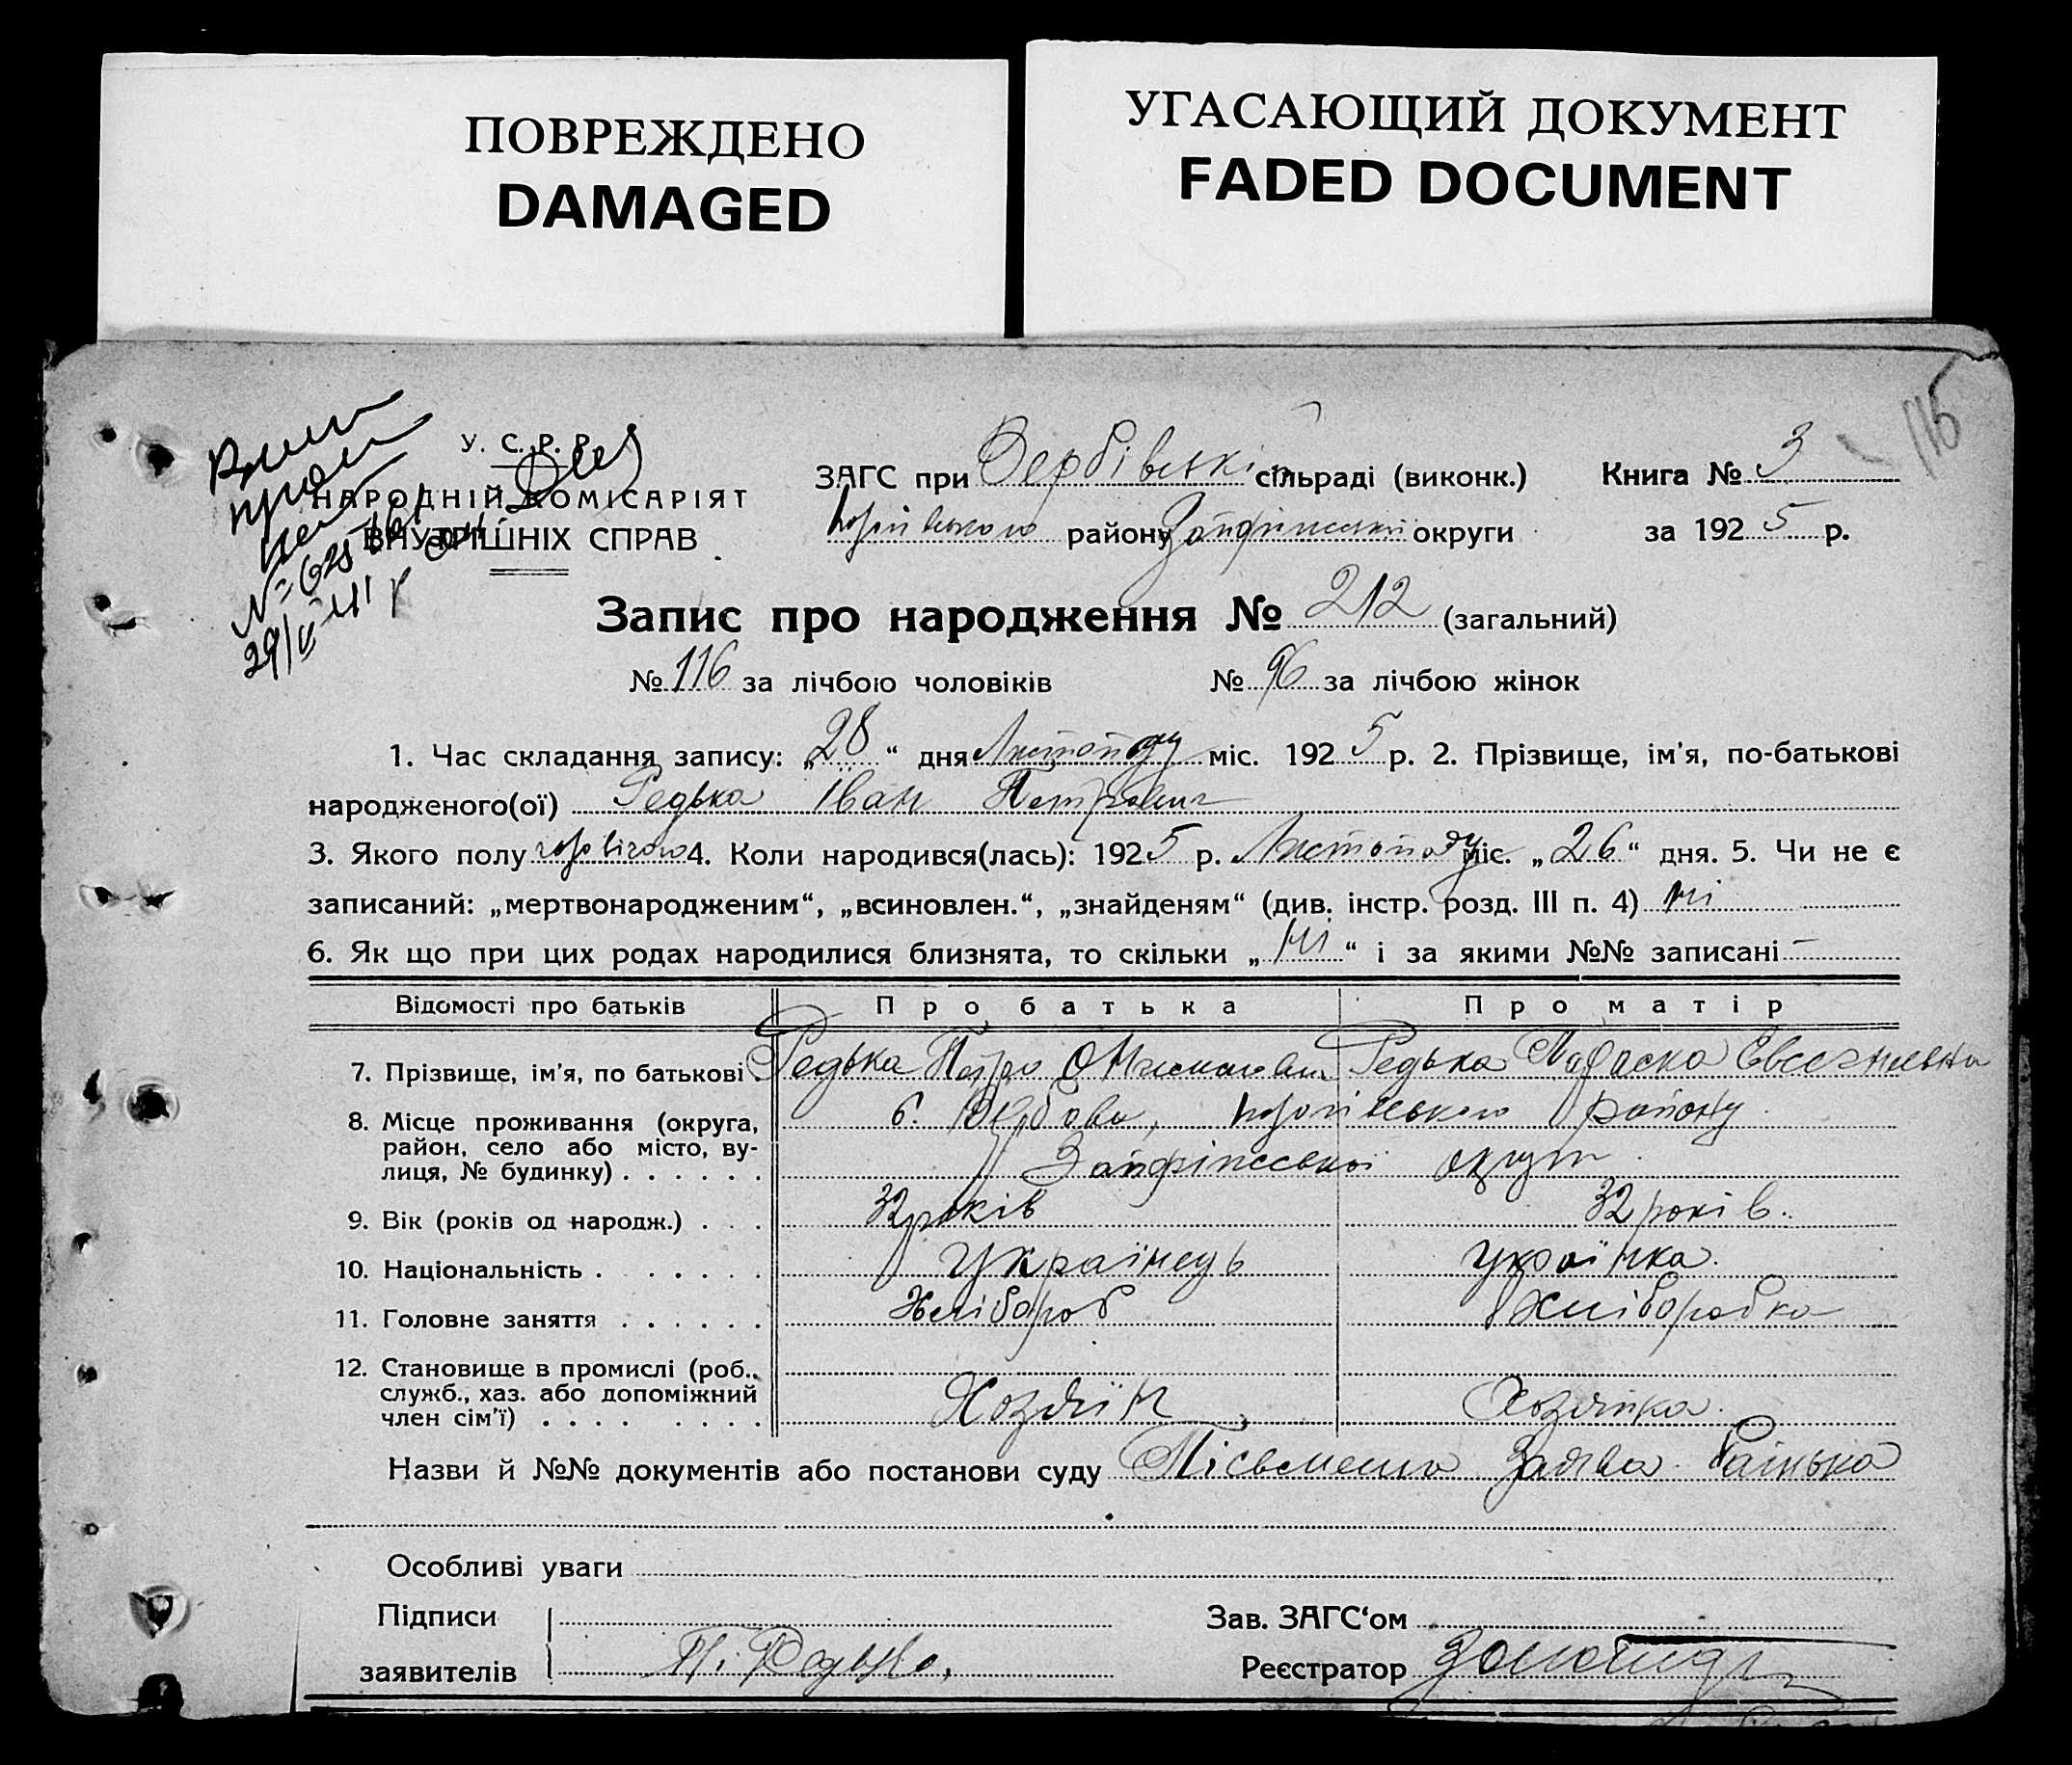 ПОВРЕЖДЕНО
DAMAGED
УГАСАЮЩИЙ ДОКУМЕНТ
FADED DOCUMENT
116
У. С. Р. Р.
НАРОДНІЙ КОМІСАРІЯТ
ВНУТРІШНІХ СПРАВ
29/V-41 р
ЗАГС при Вербівські сільраді (виконк.) Книга № 3
району округи за 1925 р.
Запис про народження № 212 (загальний)
№ 116 за лічбою чоловіків № 96 за лічбою жінок
1. Час складання запису: „28“ дня Листопаду міс. 1925 р. 2. Прізвище, ім'я, по-батькові
народженого(ої) Редька Іван Петрович
3. Якого полу чоловічого 4. Коли народився(лась): 1925 р. Листопаду міс. „26“ дня. 5. Чи не є
записаний: „мертвонародженим“, „всиновлен.“, „знайденям“ (див. інстр. розд. III п. 4) ні
6. Як що при цих родах народилися близнята, то скільки „ні“ і за якими №№ записані —
Відомості про батьків Про батька Про матір
7. Прізвище, ім'я, по батькові . Редька Петро Редька Параска
8. Місце проживання (округа, с. Вербова, району
район, село або місто, ву-
лиця, № будинку) . . . . . . округи
9. Вік (років од народж.) . . . 32 років 32 років.
10. Національність . . . . . . Українець Українка.
11. Головне заняття . . . . . . Хлібороб Хліборобка
12. Становище в промислі (роб.,
служб., хаз. або допоміжний
член сім'ї) . . . . . . . . Хозяїн Хозяйка.
Назви й №№ документів або постанови суду Пісьменна Заява Батька
Особливі уваги
Підписи Зав. ЗАГС‘ом
заявителів П. Редько. Реєстратор